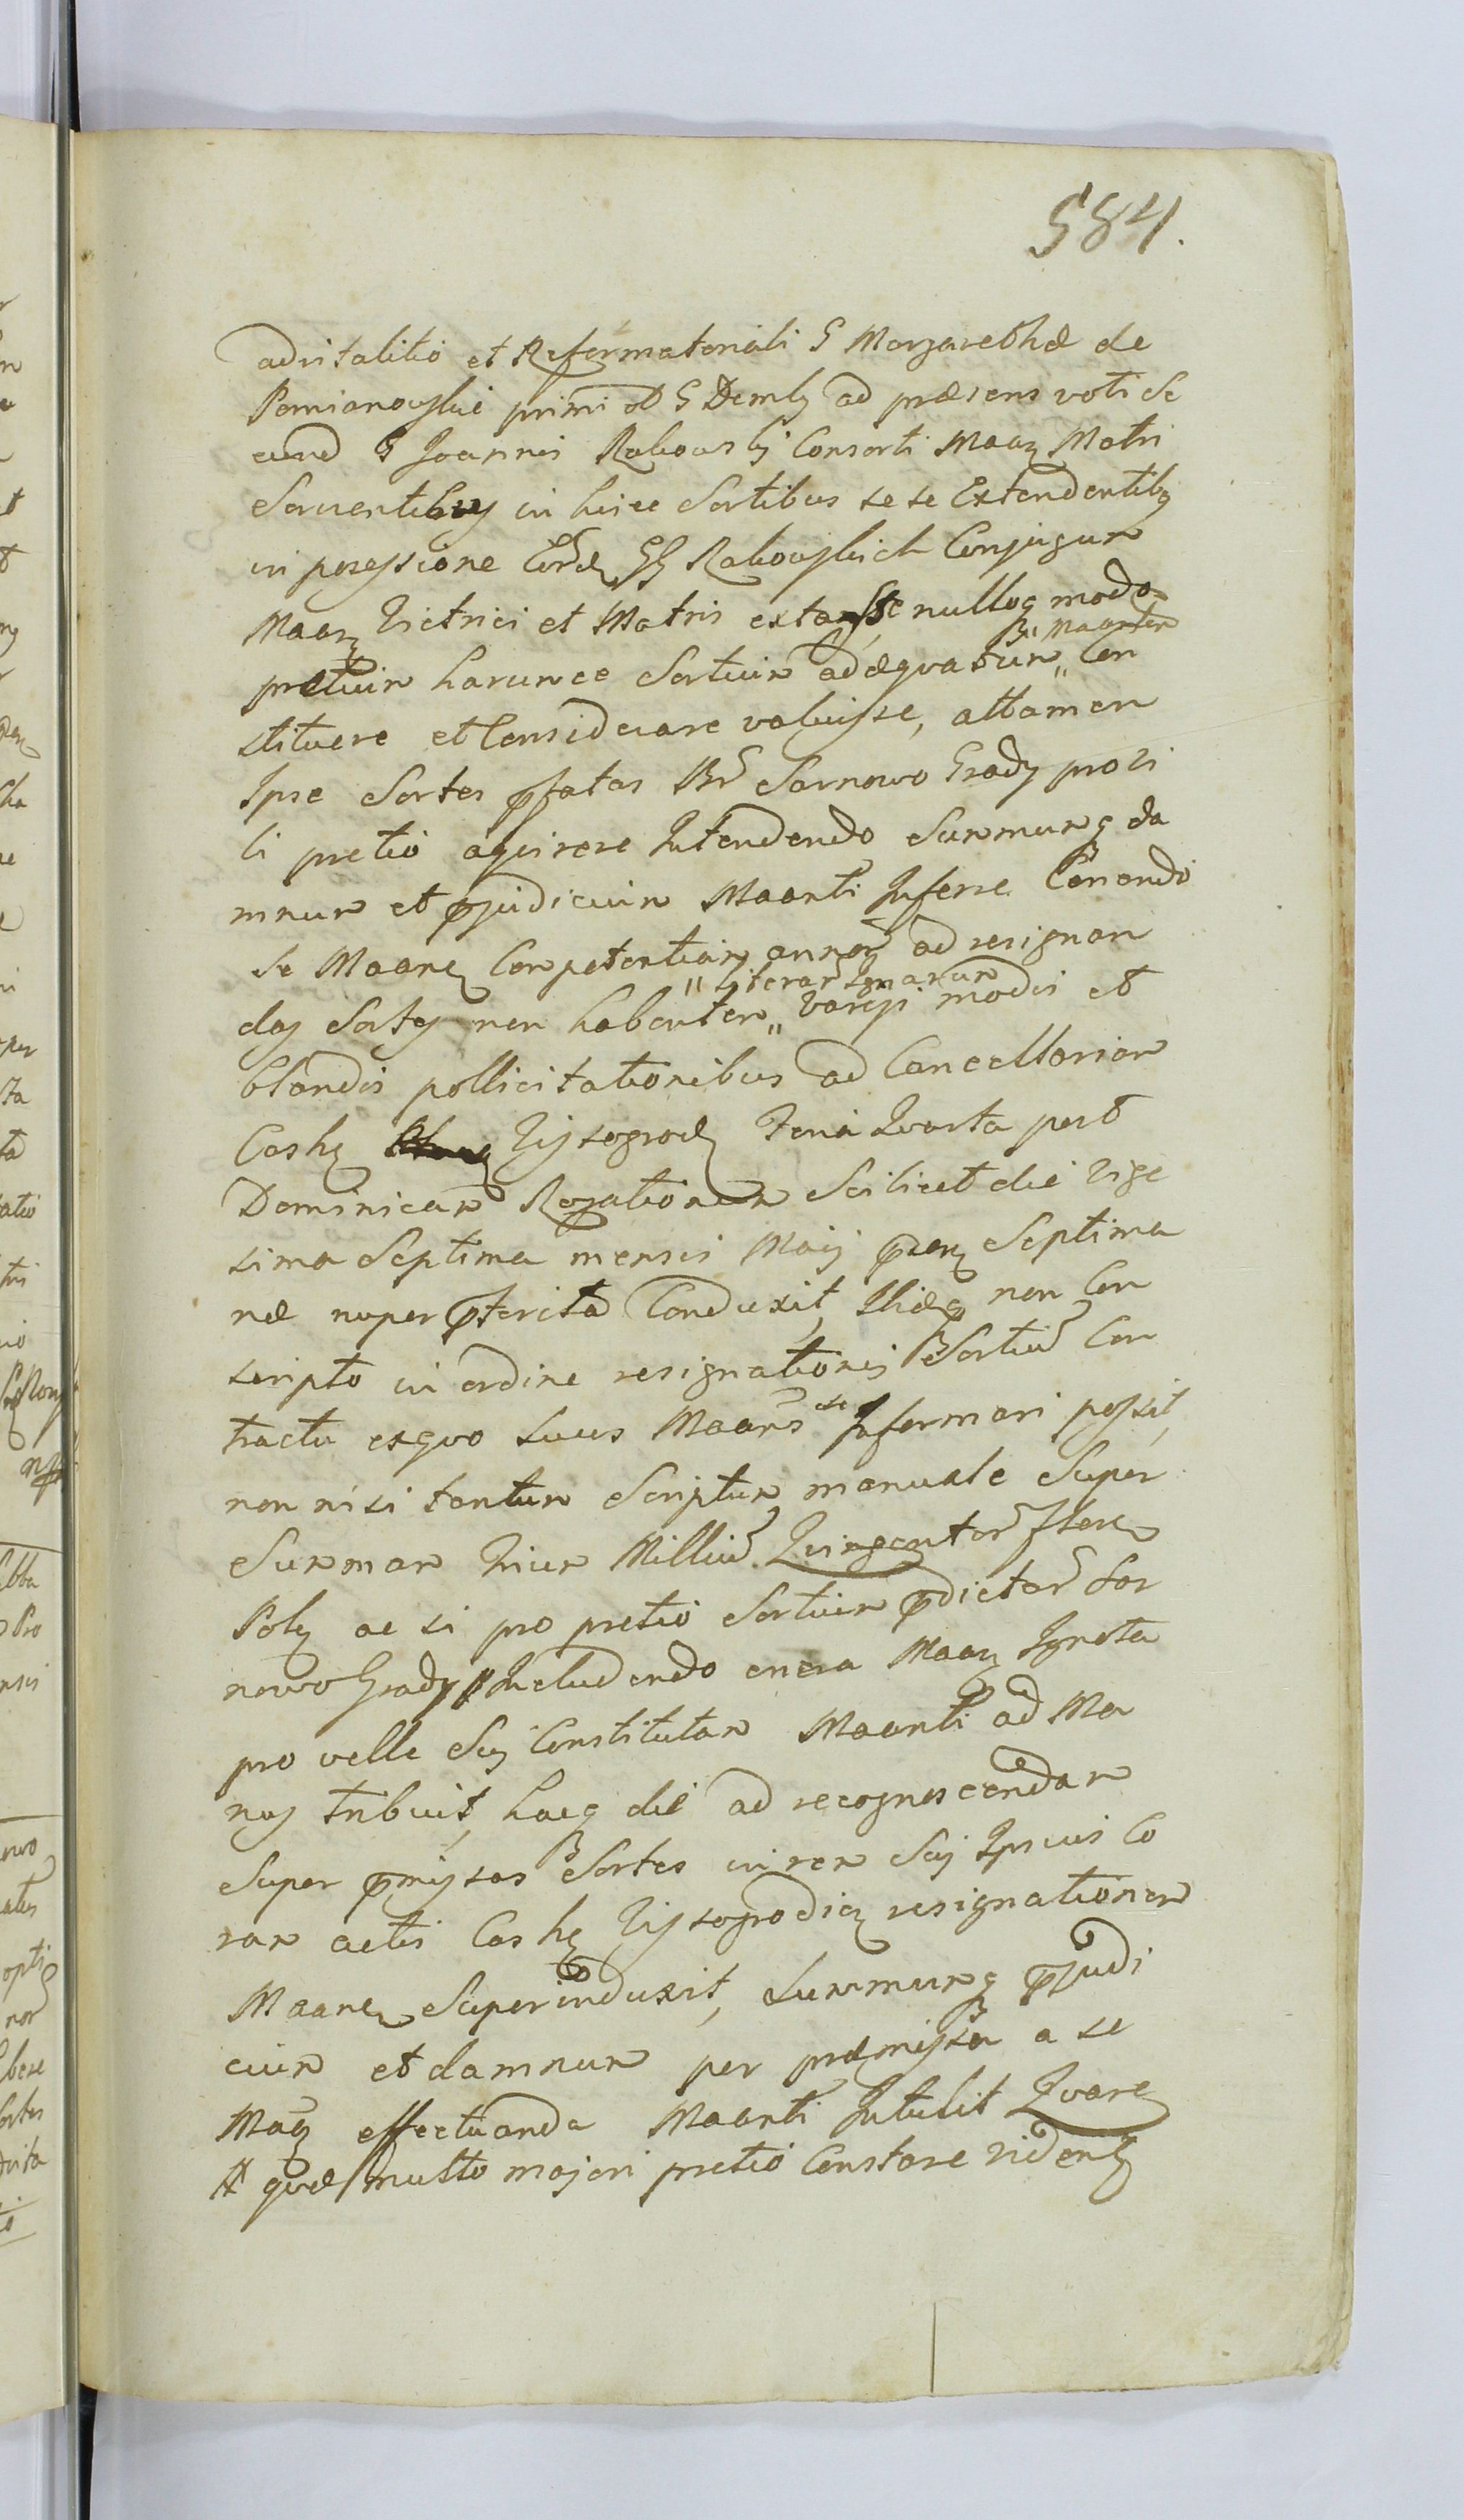 584.
advitalitio et Reformatoriali G Margarethæ de
Pomianowskie primi et G Demby ad præsens voti Se
cund G Joannis Rakowskij Consorti Maay Matri
Servientibus in hisce Sortibus sese Extendentibq
in posessione GG Rakowskich Conjugum
Maay Victrici et Matris nulloq modo
pretium harumce Sortium adæquatum „ Con
Maanten
stituere et Considerare voluisse, attamen
Ipse Sortes pfatas Br Sarnowo Grady pro vi
li pretio aquirere Intendendo Summumq da
mnum et pjudicium Maanti Inferre Conendo
se Maane Competentiam annor ad resignan
das Sortes non habentem „ varijs modis et
„ Literar Ignarum
blandis pollicitationibus ad Cancellariam
Cashz Wyssogrod Feria Quarta post
Dominicam Rogationum Scilicet die vige
sima Septima mensis Maij pzen Septima
næ nuper pterita Conduxit, Ibidq non Con
scripto in ordine resignationis Sortiu Con
tractu exquo suus Maans se Informari possit,
non nisi tantum Scriptum manuale Super
Summam Trium Milliu Quingentor flor
Poly ac si pro pretio Sortium pdictar Sar
nowo Grady Includendo onera Maay Ignota
pro velle Suj Constitutam Maanti ad Ma
nus tribuit, hacq die ad recognoscendam
Super pmissas Sortes in rem Suj Ipsius Co
ram actis Cashz Wyssogrodie resignationem
Maane Superinduxit, Summumq pjudi
cium et damnum per præmissa a se
Maay effectuanda Maanti Intulit Quare
# quæ multo majori pretio Constare viden